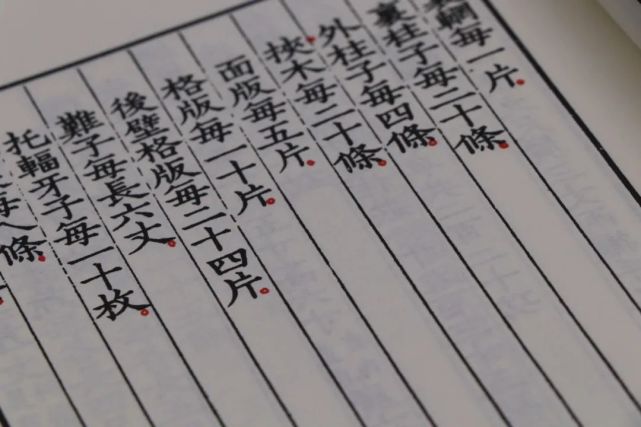 輞每一片。
裏柱子每二十條。
外柱子每四條。
挾木每二十條。
面版每五片。
格版每一十片。
後壁格版每二十四片。
難子每長六丈。
托輻牙子每一十枚。
每八條。